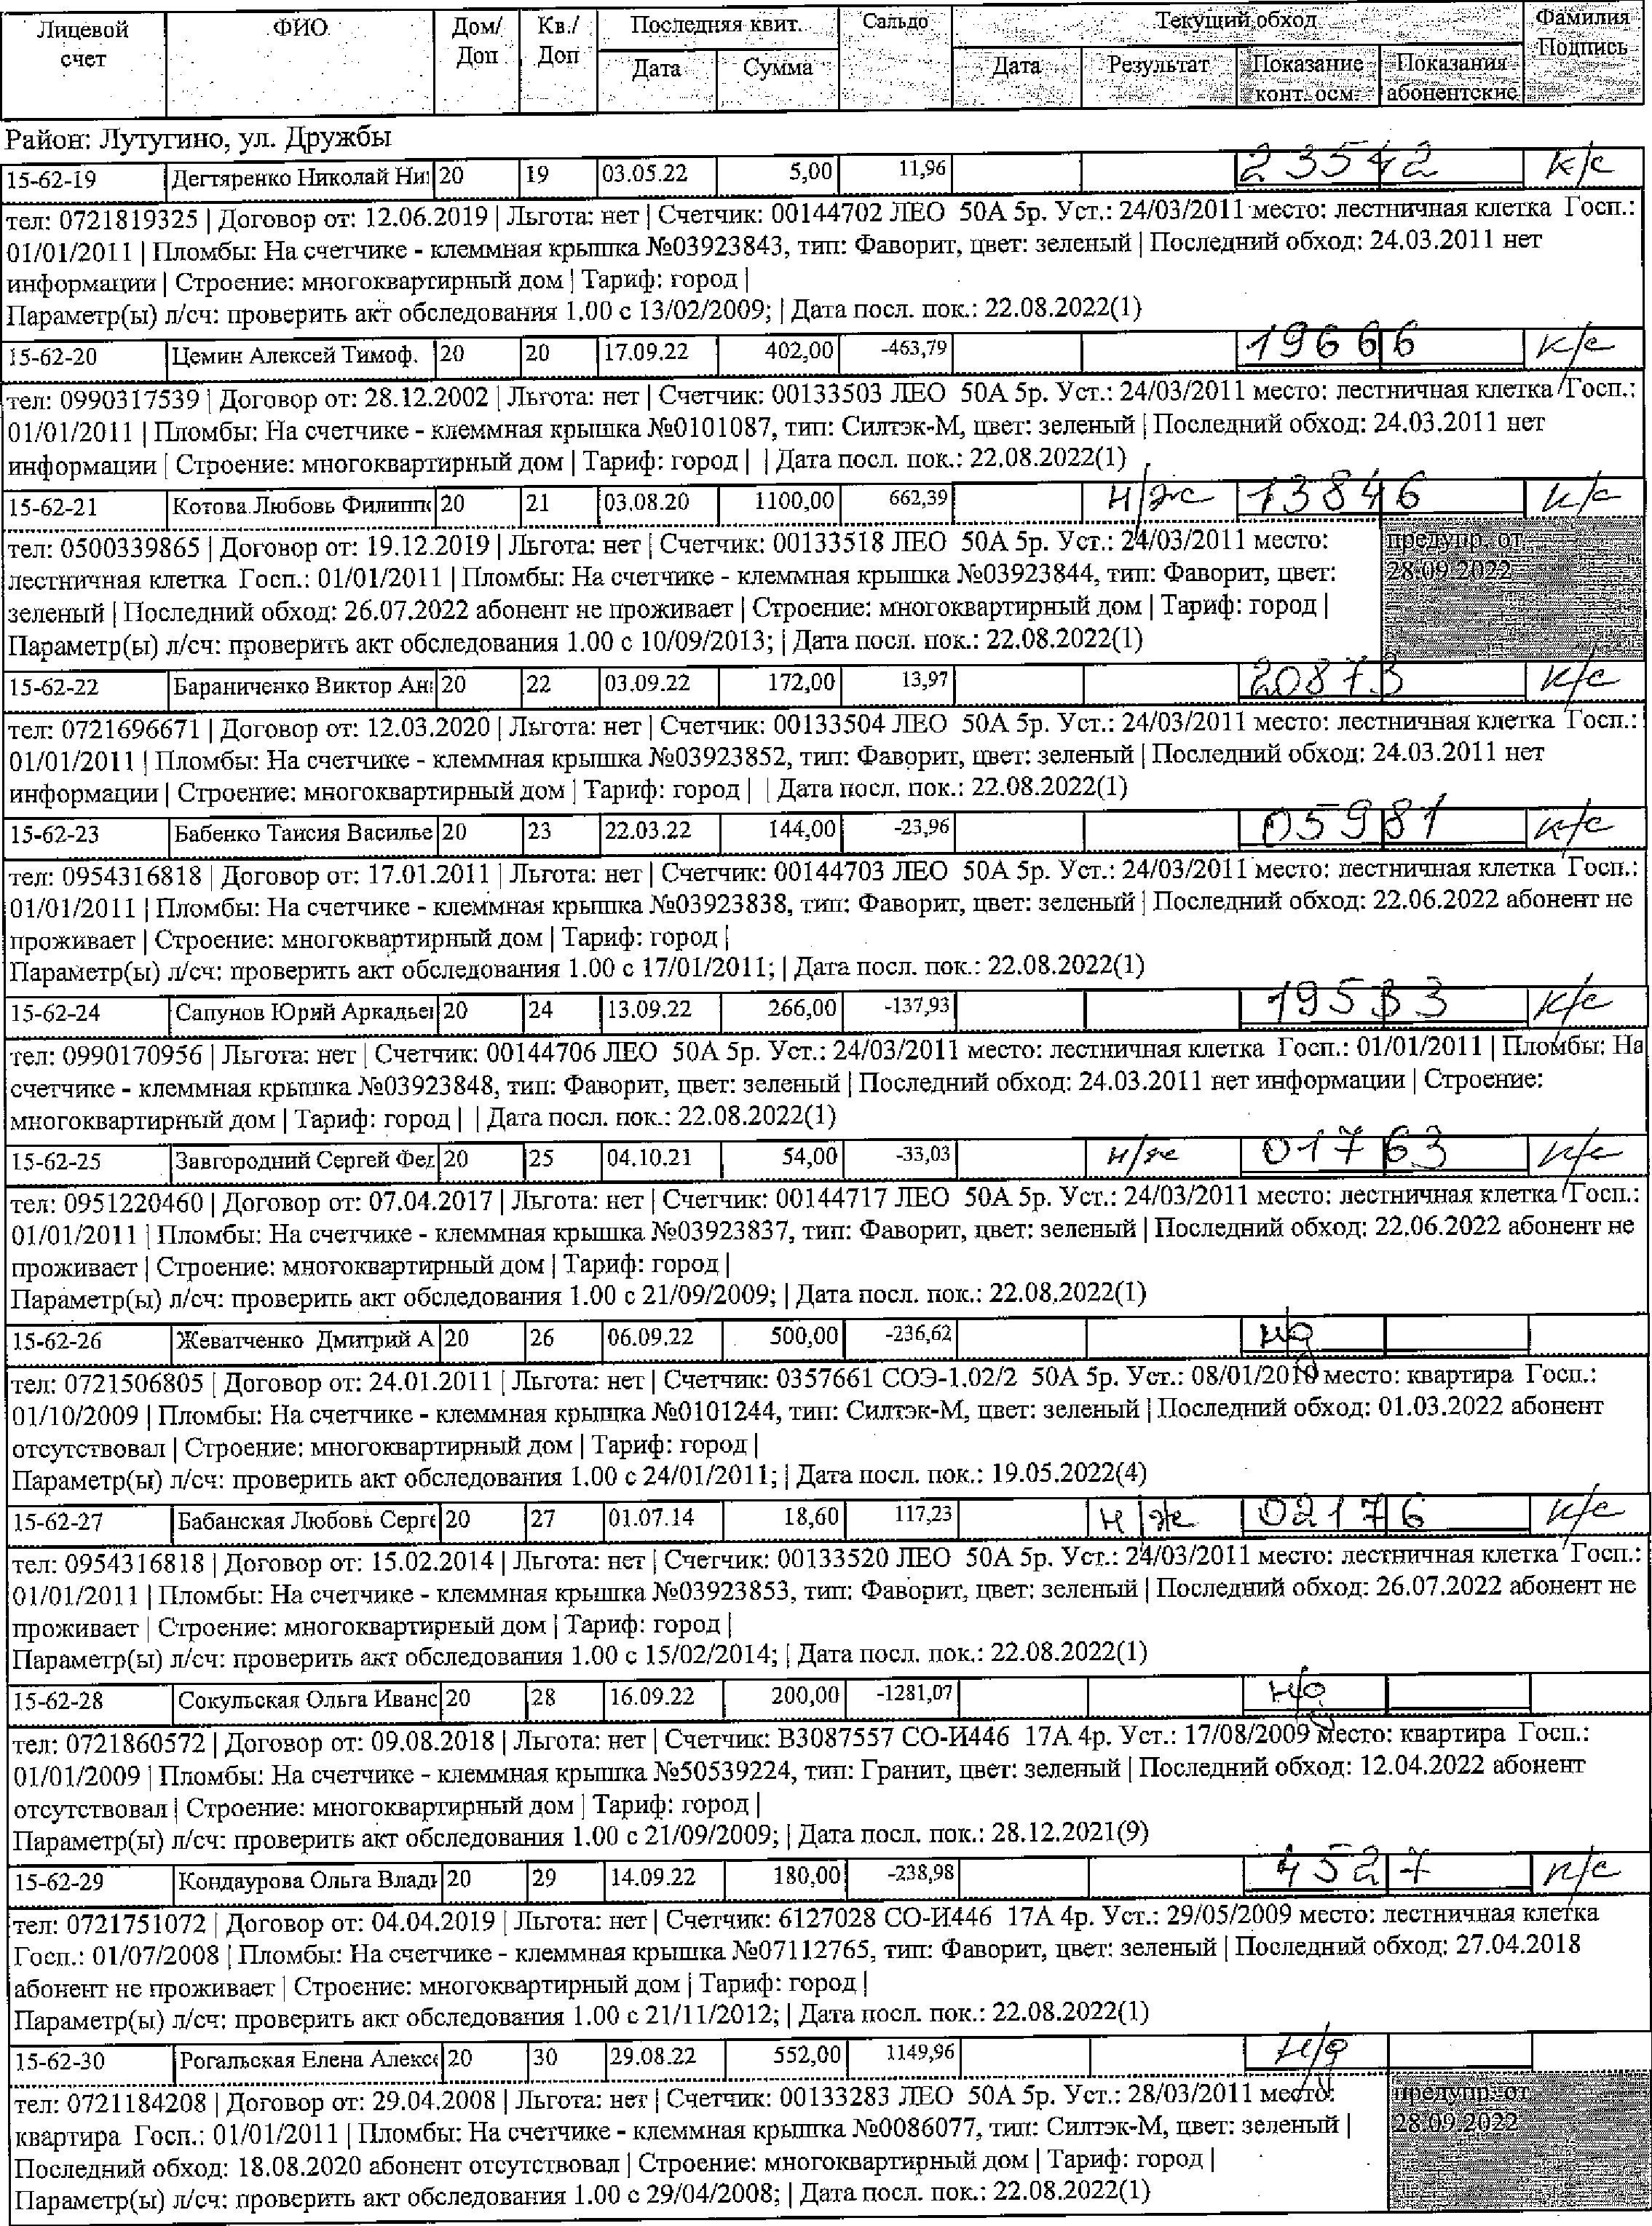 Лицевой счет ФИО Дом/Доп Кв./Доп Последняя квит. Сальдо Текущий обход Фамилия Подпись
Дата Сумма Дата Результат Показание конт. осм. Показания абонентские
Район: Лутугино, ул. Дружбы
15-62-19 Дегтяренко Николай Ни 20 19 03.05.22 5,00 11,96 23542 к/с
тел: 0721819325 | Договор от: 12.06.2019 | Льгота: нет | Счетчик: 00144702 ЛЕО 50А 5р. Уст.: 24/03/2011 место: лестничная клетка Госп.:
01/01/2011 | Пломбы: На счетчике - клеммная крышка №03923843, тип: Фаворит, цвет: зеленый | Последний обход: 24.03.2011 нет
информации | Строение: многоквартирный дом | Тариф: город |
Параметр(ы) л/сч: проверить акт обследования 1.00 с 13/02/2009; | Дата посл. пок.: 22.08.2022(1)
15-62-20 Цемин Алексей Тимоф. 20 20 17.09.22 402,00 -463,79 19666 к/с
тел: 0990317539 | Договор от: 28.12.2002 | Льгота: нет | Счетчик: 00133503 ЛЕО 50А 5р. Уст.: 24/03/2011 место: лестничная клетка Госп.:
01/01/2011 | Пломбы: На счетчике - клеммная крышка №0101087, тип: Силтэк-М, цвет: зеленый | Последний обход: 24.03.2011 нет
информации | Строение: многоквартирный дом | Тариф: город | | Дата посл. пок.: 22.08.2022(1)
15-62-21 Котова Любовь Филипп 20 21 03.08.20 1100,00 662,39 н/ж 13846 к/с
тел: 0500339865 | Договор от: 19.12.2019 | Льгота: нет | Счетчик: 00133518 ЛЕО 50А 5р. Уст.: 24/03/2011 место:
лестничная клетка Госп.: 01/01/2011 | Пломбы: На счетчике - клеммная крышка №03923844, тип: Фаворит, цвет:
зеленый | Последний обход: 26.07.2022 абонент не проживает | Строение: многоквартирный дом | Тариф: город |
Параметр(ы) л/сч: проверить акт обследования 1.00 с 10/09/2013; | Дата посл. пок.: 22.08.2022(1)
предупр. от
28.09.2022
15-62-22 Бараниченко Виктор Ан 20 22 03.09.22 172,00 13,97 20873 к/с
тел: 0721696671 | Договор от: 12.03.2020 | Льгота: нет | Счетчик: 00133504 ЛЕО 50А 5р. Уст.: 24/03/2011 место: лестничная клетка Госп.:
01/01/2011 | Пломбы: На счетчике - клеммная крышка №03923852, тип: Фаворит, цвет: зеленый | Последний обход: 24.03.2011 нет
информации | Строение: многоквартирный дом | Тариф: город | | Дата посл. пок.: 22.08.2022(1)
15-62-23 Бабенко Таисия Василье 20 23 22.03.22 144,00 -23,96 05981 к/с
тел: 0954316818 | Договор от: 17.01.2011 | Льгота: нет | Счетчик: 00144703 ЛЕО 50А 5р. Уст.: 24/03/2011 место: лестничная клетка Госп.:
01/01/2011 | Пломбы: На счетчике - клеммная крышка №03923838, тип: Фаворит, цвет: зеленый | Последний обход: 22.06.2022 абонент не
проживает | Строение: многоквартирный дом | Тариф: город |
Параметр(ы) л/сч: проверить акт обследования 1.00 с 17/01/2011; | Дата посл. пок.: 22.08.2022(1)
15-62-24 Сапунов Юрий Аркадье 20 24 13.09.22 266,00 -137,93 19533 к/с
тел: 0990170956 | Льгота: нет | Счетчик: 00144706 ЛЕО 50А 5р. Уст.: 24/03/2011 место: лестничная клетка Госп.: 01/01/2011 | Пломбы: На
счетчике - клеммная крышка №03923848, тип: Фаворит, цвет: зеленый | Последний обход: 24.03.2011 нет информации | Строение:
многоквартирный дом | Тариф: город | | Дата посл. пок.: 22.08.2022(1)
15-62-25 Завгородний Сергей Фед 20 25 04.10.21 54,00 -33,03 н/ж 01763 к/с
тел: 0951220460 | Договор от: 07.04.2017 | Льгота: нет | Счетчик: 00144717 ЛЕО 50А 5р. Уст.: 24/03/2011 место: лестничная клетка Госп.:
01/01/2011 | Пломбы: На счетчике - клеммная крышка №03923837, тип: Фаворит, цвет: зеленый | Последний обход: 22.06.2022 абонент не
проживает | Строение: многоквартирный дом | Тариф: город |
Параметр(ы) л/сч: проверить акт обследования 1.00 с 21/09/2009; | Дата посл. пок.: 22.08.2022(1)
15-62-26 Жеватченко Дмитрий А 20 26 06.09.22 500,00 -236,62 н/д
тел: 0721506805 | Договор от: 24.01.2011 | Льгота: нет | Счетчик: 0357661 СОЭ-1.02/2 50А 5р. Уст.: 08/01/2010 место: квартира Госп.:
01/10/2009 | Пломбы: На счетчике - клеммная крышка №0101244, тип: Силтэк-М, цвет: зеленый | Последний обход: 01.03.2022 абонент
отсутствовал | Строение: многоквартирный дом | Тариф: город |
Параметр(ы) л/сч: проверить акт обследования 1.00 с 24/01/2011; | Дата посл. пок.: 19.05.2022(4)
15-62-27 Бабанская Любовь Серге 20 27 01.07.14 18,60 117,23 н/ж 02176 к/с
тел: 0954316818 | Договор от: 15.02.2014 | Льгота: нет | Счетчик: 00133520 ЛЕО 50А 5р. Уст.: 24/03/2011 место: лестничная клетка Госп.:
01/01/2011 | Пломбы: На счетчике - клеммная крышка №03923853, тип: Фаворит, цвет: зеленый | Последний обход: 26.07.2022 абонент не
проживает | Строение: многоквартирный дом | Тариф: город |
Параметр(ы) л/сч: проверить акт обследования 1.00 с 15/02/2014; | Дата посл. пок.: 22.08.2022(1)
15-62-28 Сокульская Ольга Иванс 20 28 16.09.22 200,00 -1281,07 н/д
тел: 0721860572 | Договор от: 09.08.2018 | Льгота: нет | Счетчик: В3087557 СО-И446 17А 4р. Уст.: 17/08/2009 место: квартира Госп.:
01/01/2009 | Пломбы: На счетчике - клеммная крышка №50539224, тип: Гранит, цвет: зеленый | Последний обход: 12.04.2022 абонент
отсутствовал | Строение: многоквартирный дом | Тариф: город |
Параметр(ы) л/сч: проверить акт обследования 1.00 с 21/09/2009; | Дата посл. пок.: 28.12.2021(9)
15-62-29 Кондаурова Ольга Влад 20 29 14.09.22 180,00 -238,98 4527 к/с
тел: 0721751072 | Договор от: 04.04.2019 | Льгота: нет | Счетчик: 6127028 СО-И446 17А 4р. Уст.: 29/05/2009 место: лестничная клетка
Госп.: 01/07/2008 | Пломбы: На счетчике - клеммная крышка №07112765, тип: Фаворит, цвет: зеленый | Последний обход: 27.04.2018
абонент не проживает | Строение: многоквартирный дом | Тариф: город |
Параметр(ы) л/сч: проверить акт обследования 1.00 с 21/11/2012; | Дата посл. пок.: 22.08.2022(1)
15-62-30 Рогальская Елена Алекс 20 30 29.08.22 552,00 1149,96 н/д
тел: 0721184208 | Договор от: 29.04.2008 | Льгота: нет | Счетчик: 00133283 ЛЕО 50А 5р. Уст.: 28/03/2011 место:
квартира Госп.: 01/01/2011 | Пломбы: На счетчике - клеммная крышка №0086077, тип: Силтэк-М, цвет: зеленый |
Последний обход: 18.08.2020 абонент отсутствовал | Строение: многоквартирный дом | Тариф: город |
Параметр(ы) л/сч: проверить акт обследования 1.00 с 29/04/2008; | Дата посл. пок.: 22.08.2022(1)
предупр. от
28.09.2022